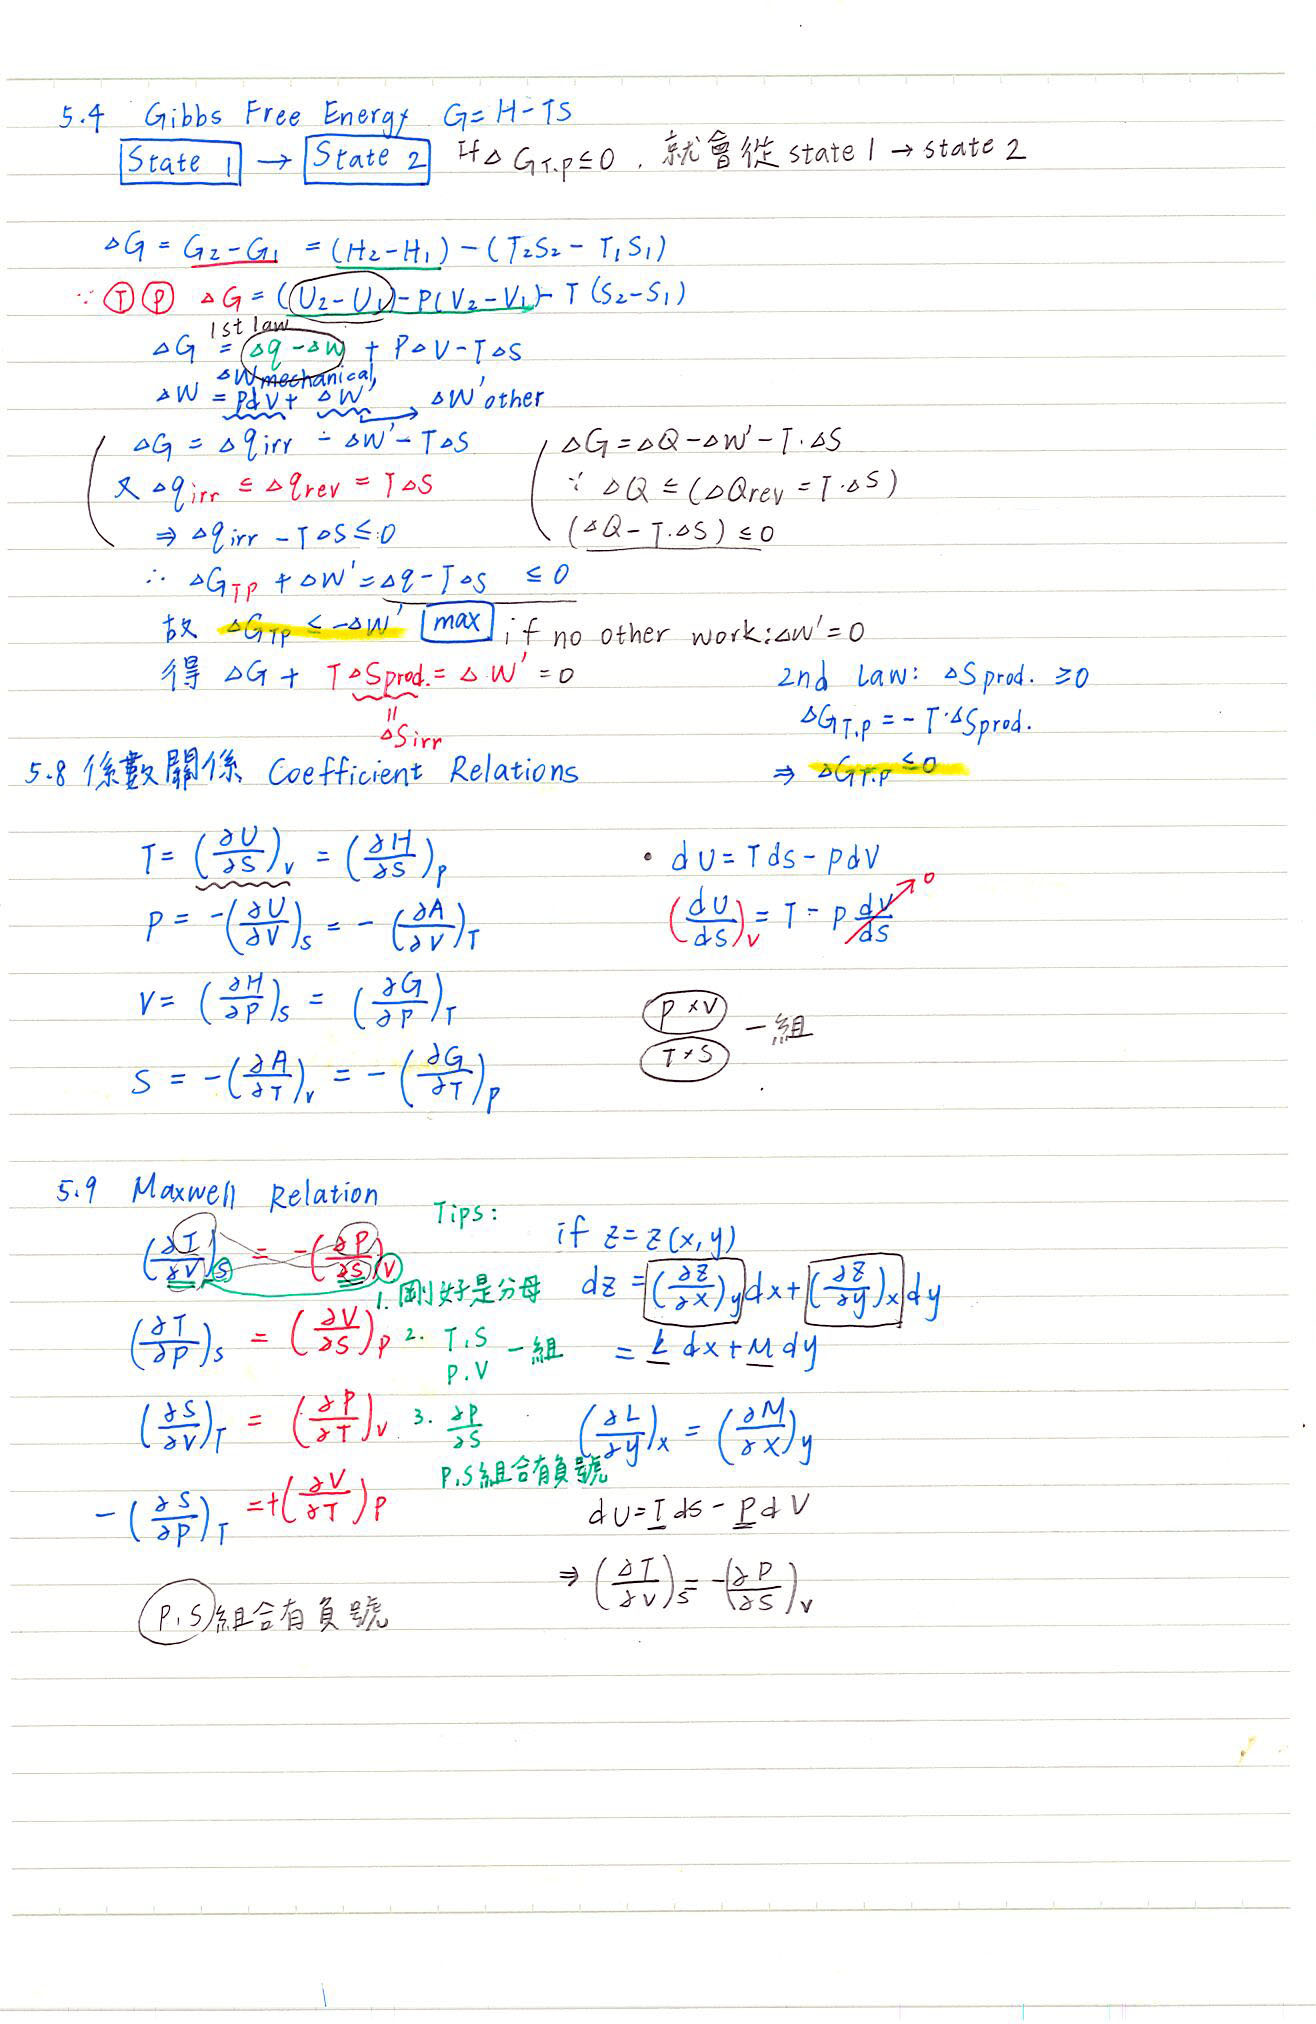 5.4 Gibbs Free Energy G=H-TS
State 1 → State 2 If △G_T.P≤0 , 就會從 state 1 → state 2
△G = G₂-G₁ = (H₂-H₁) - (T₂S₂ - T₁S₁)
∵ Ⓣ Ⓟ △G = (U₂-U₁)-P(V₂-V₁)- T (S₂-S₁)
1st law
△G = △q -△W + P△V-T△S
△Wmechanical,
△W = PdV+ △W' → △W'other
△G = △q irr - △W'- T△S
又 △q irr ≤ △q rev = T△S
⇒ △q irr - T△S ≤ 0
△G=△Q-△W'-T.△S
∵ △Q ≤ (△Qrev = T.△S)
(△Q-T.△S) ≤ 0
∴ △G_TP + △W' = △q-T△S ≤ 0
故 △G_TP ≤ -△W' max if no other work: △W'=0
得 △G + T△Sprod. = △W' = 0
=
△Sirr
2nd Law: △Sprod. ≥0
△G_T.P = -T.△Sprod.
⇒ △G_T.P ≤ 0
5.8 係數關係 Coefficient Relations
T = (∂U/∂S)_V = (∂H/∂S)_P
P = -(∂U/∂V)_S = -(∂A/∂V)_T
V = (∂H/∂P)_S = (∂G/∂P)_T
S = -(∂A/∂T)_V = -(∂G/∂T)_P
• dU = Tds - PdV
(dU/dS)_V = T - P dV/dS → 0
P × V
T × S
一組
5.9 Maxwell Relation
(∂T/∂V)_S = -(∂P/∂S)_V
(∂T/∂P)_S = (∂V/∂S)_P
(∂S/∂V)_T = (∂P/∂T)_V
-(∂S/∂P)_T = +(∂V/∂T)_P
P.S 組合有負號
Tips:
1. 剛好是分母
2. T.S
P.V
一組
3. ∂P/∂S
P.S組合有負號
if z = z(x,y)
dz = (∂z/∂x)_y dx + (∂z/∂y)_x dy
= L dx + M dy
(∂L/∂y)_x = (∂M/∂x)_y
dU = Tds - PdV
⇒ (∂T/∂V)_S = -(∂P/∂S)_V